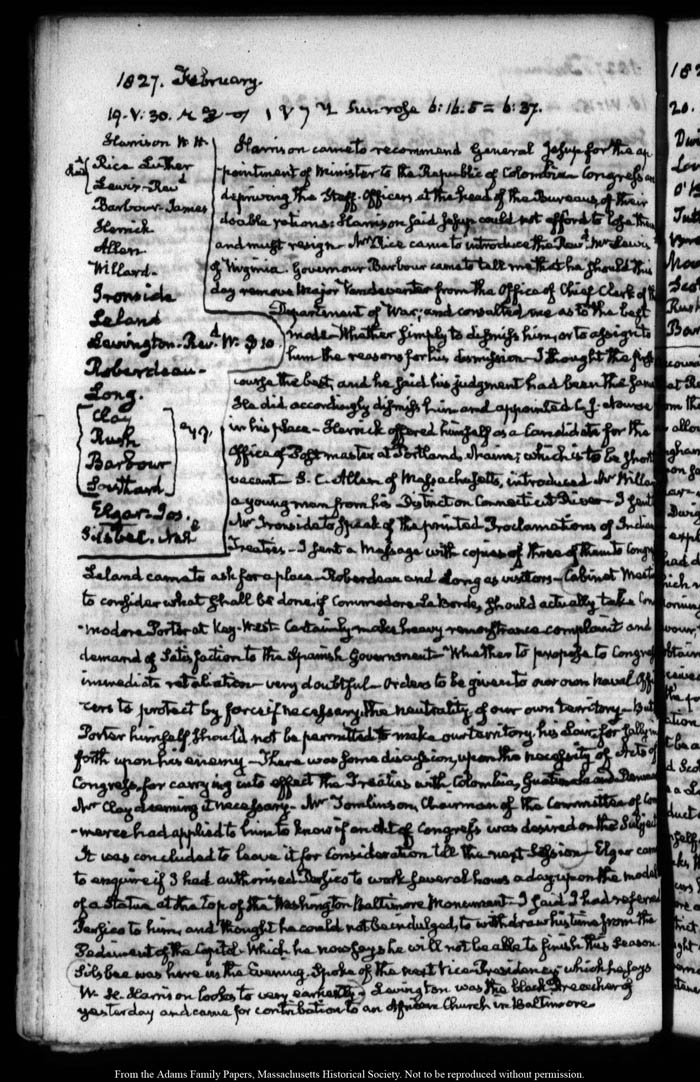 1827. February.
19. V: 30. Sun rose 6:16.5 = 6:37.
Harrison W. H.
Rice Luther
Lewis - Revd
Barbour - James
Herrick
Allen
Willard -
Ironside
Leland
Levington - Revd W. $10
Roberdeau -
Long.
Clay
Rush
Barbour
Southard
Elgar - Jos.
Silsbee - Nat
Harrison came to recommend General Jesup for the ap
pointment of Minister to the Republic of Colombia - Congress
depriving the Staff-Officers at the head of the Bureaus of their
double rations: Harrison said Jesup could not afford to lose them
and must resign - Mr Rice came to introduce the Revd Mr Lewis
of Virginia. Governour Barbour came to tell me that he should this
day remove Major Vandeventer from the Office of Chief Clerk of the
Department of War; and consulted me as to the best
mode - Whether simply to dismiss him, or to assign to
him the reasons for his dismission - I thought the first
course the best, and he said his judgment had been the same
He did accordingly dismiss him and appointed C. J. Nourse
in his place - Herrick offered himself as a Candidate for the
Office of Postmaster at Portland, Maine; which is to be shortly
vacant - S. C. Allen of Massachusetts, introduced Mr Willard
a young man from his District on Connecticut River - I sent
Mr Ironside to speak of the printed Proclamations of Indian
Treaties - I sent a Message with copies of three of them to Congress
Leland came to ask for a place - Roberdeau and Long as visitors - Cabinet Meeting
to consider what shall be done if Commodore LaBorde, should actually take Com
-modore Porter at Key-West - Certainly make heavy remonstrance complaint and
demand of Satisfaction to the Spanish Government - Whether to propose to Congress
immediate retaliation - very doubtful - Orders to be given to our own naval Offi
cers to protect by force if necessary, the neutrality of our own territory - But
Porter himself should not be permitted to make our territory his for sallying
forth upon his enemy - There was some discussion, upon the necessity of Acts of
Congress, for carrying into effect the Treaties with Colombia, Guatemala and Denmark
Mr Clay deeming it necessary - Mr Tomlinson, Chairman of the Committee of Com
-merce had applied to him to know if an Act of Congress was desired on the Subject
It was concluded to leave it for consideration till the next Session - Elgar came
to enquire if I had authorised Persico to work several hours a day upon the model
of a Statue at the top of the Washington Baltimore Monument - I said I had referred
Persico to him, and thought he could not be indulged, to withdraw his time from the
Pediment of the Capitol - Which he now says he will not be able to finish this Season.
Silsbee was here in the Evening. Spoke of the next Vice-Presidency which he says
W. H. Harrison looks to very earnestly - Levington was the black Preacher of
yesterday and came for contribution to an African Church in Baltimore
From the Adams Family Papers, Massachusetts Historical Society. Not to be reproduced without permission.